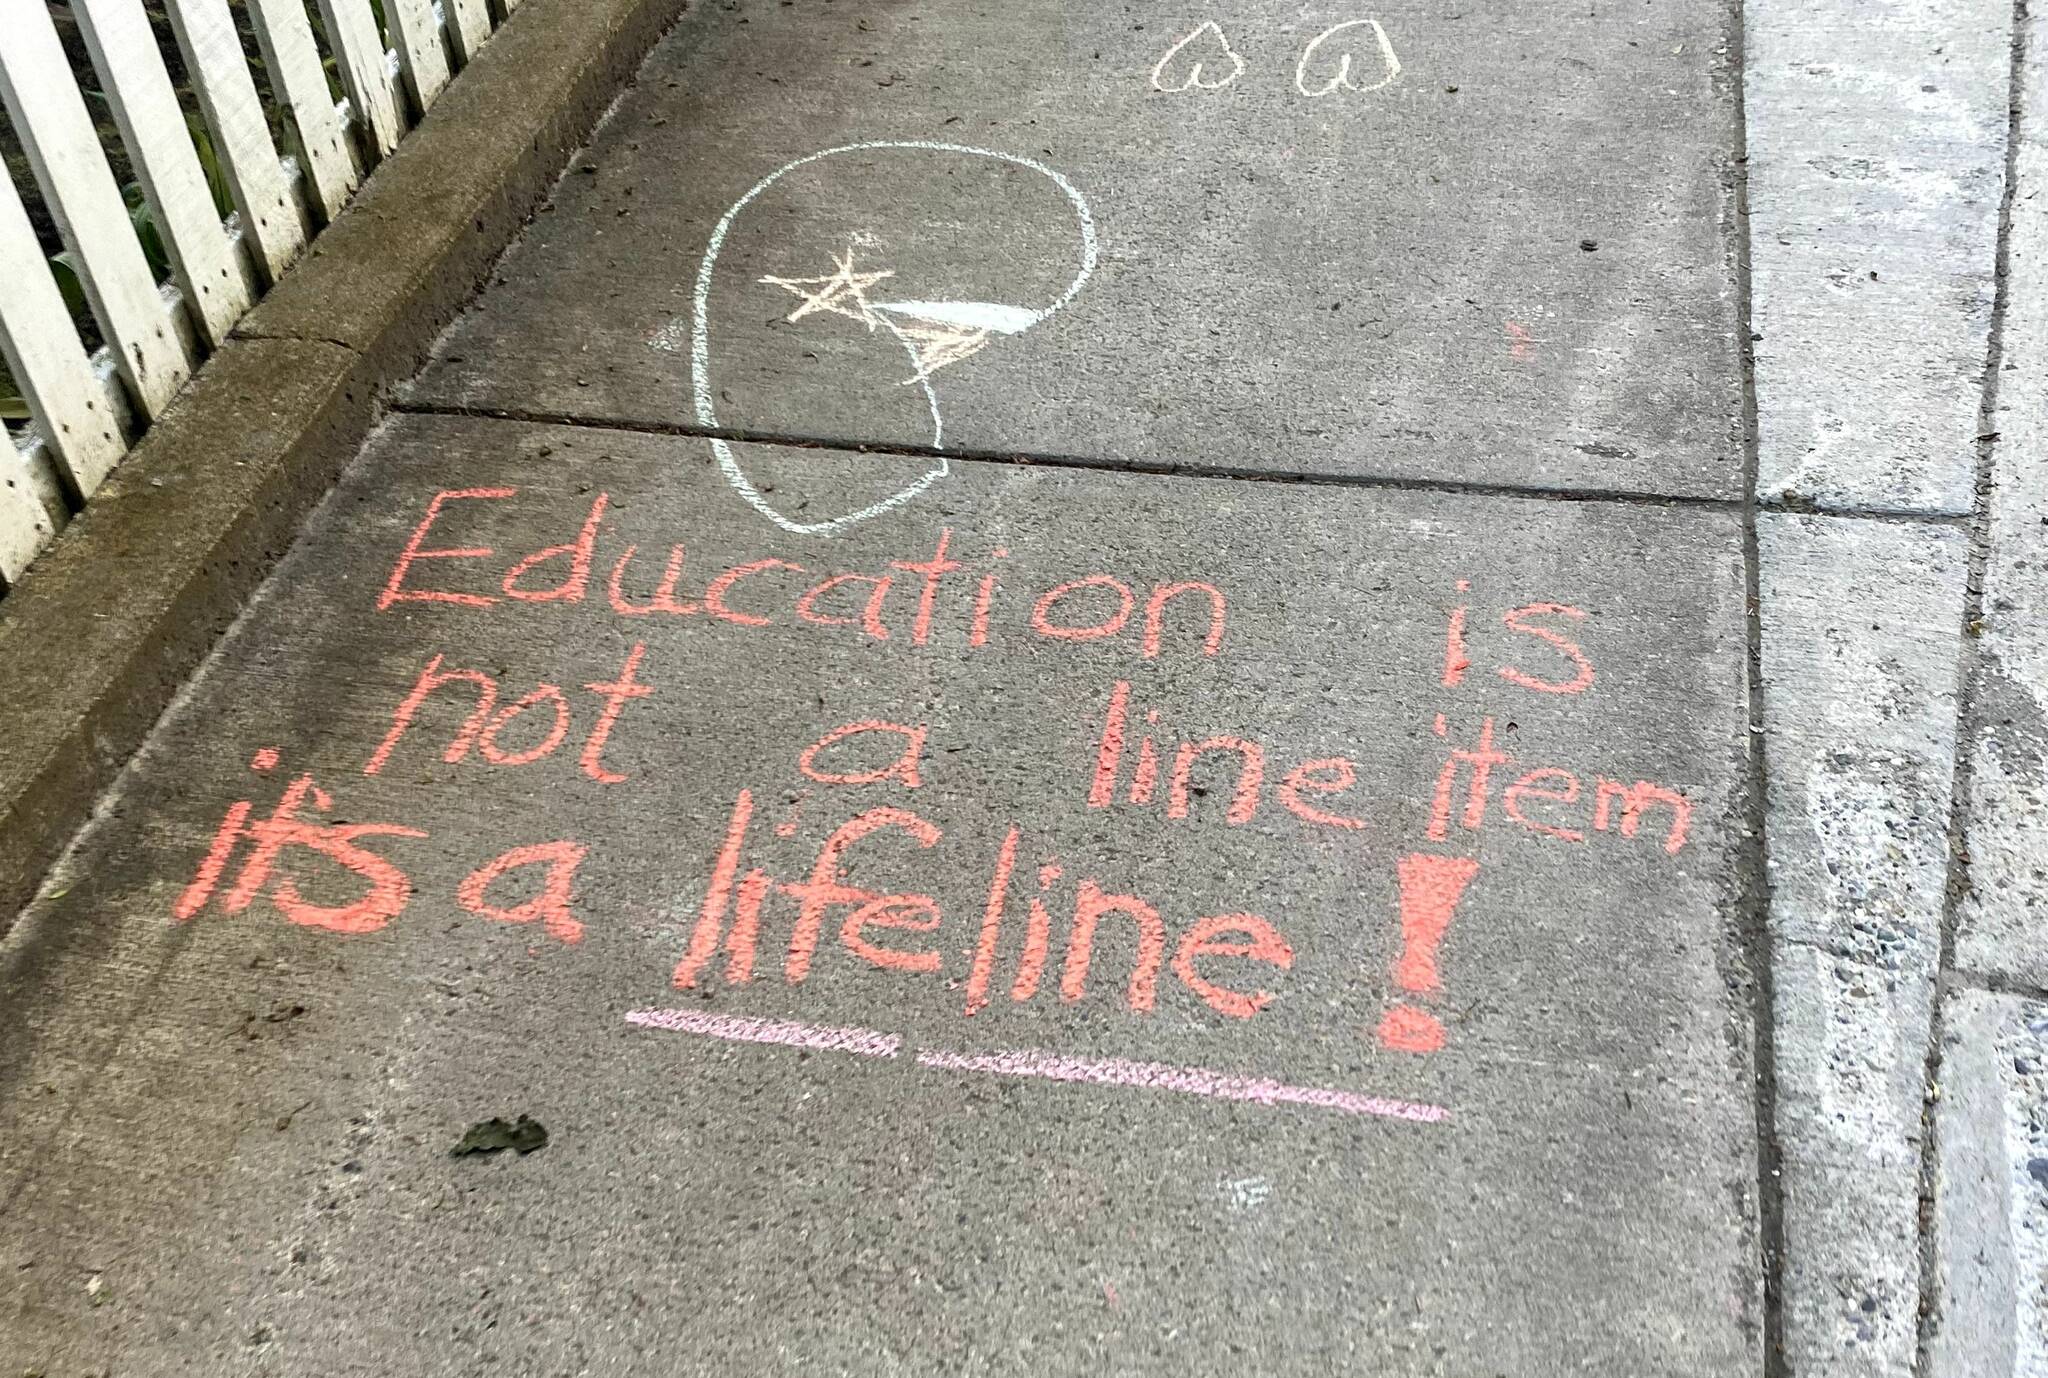 Education is
not a line item
it's a lifeline!